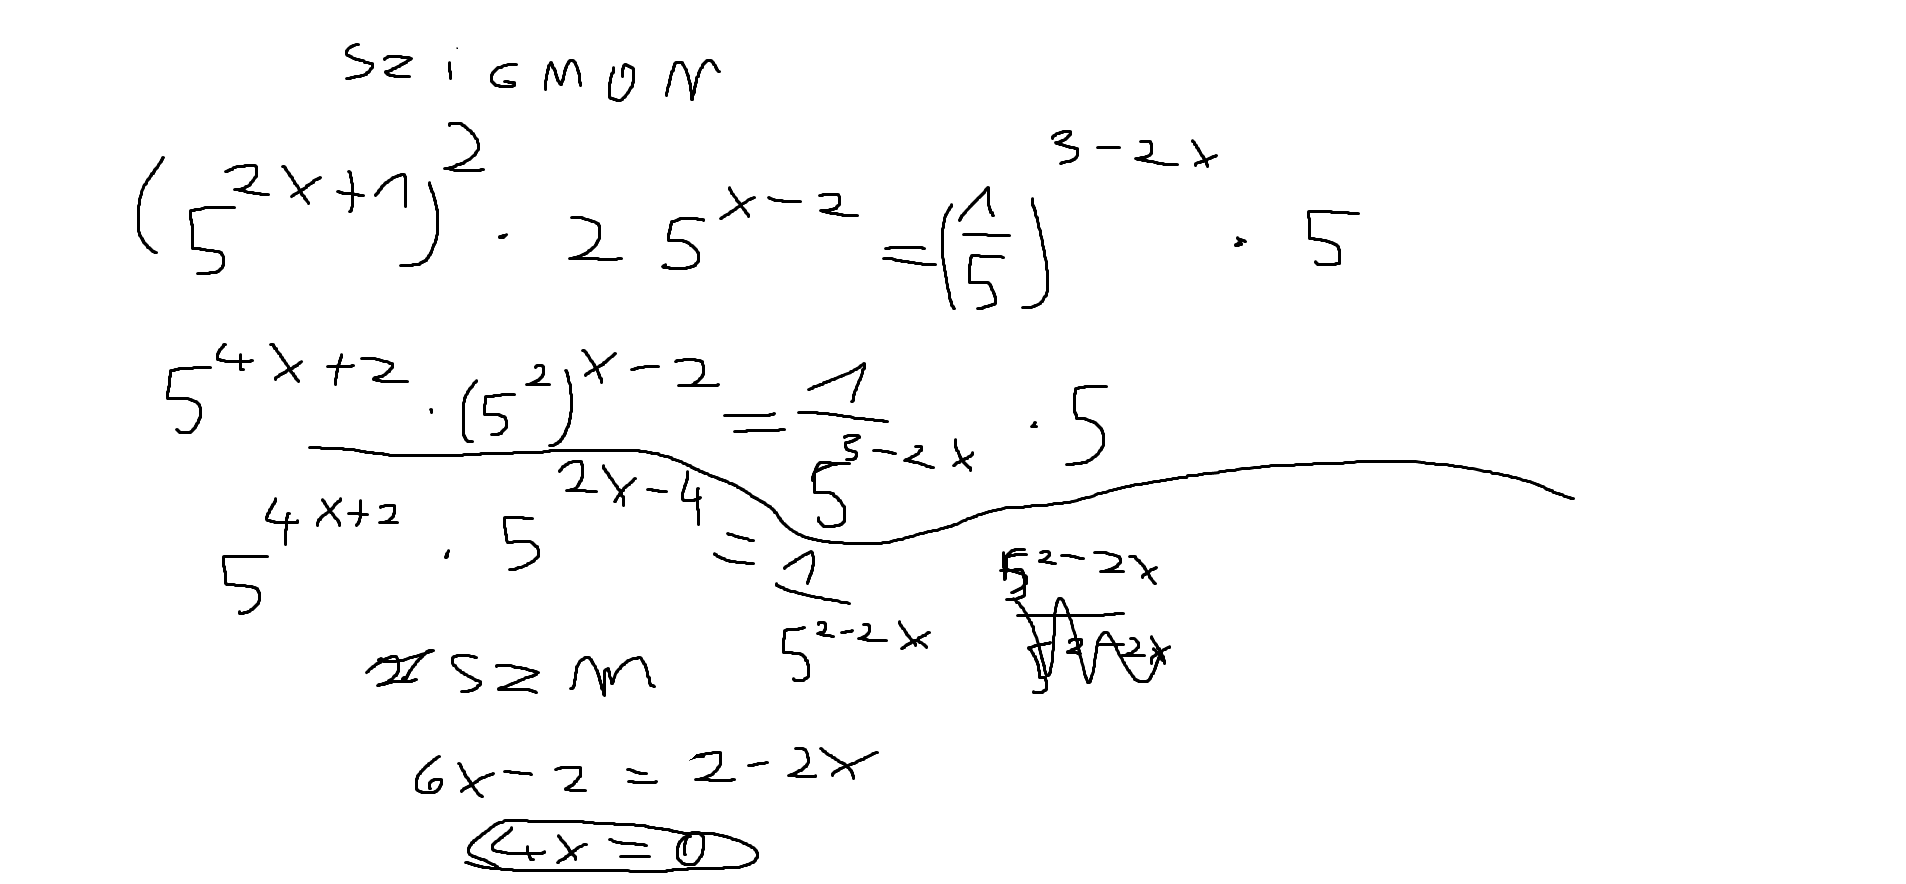 SZiGMON
(5^{2x+1})^2 · 25^{x-2} = (1/5)^{3-2x} · 5
5^{4x+2} · (5^2)^{x-2} = 1/5^{3-2x} · 5
5^{4x+2} · 5^{2x-4} = 1/5^{2-2x} 5^{2-2x}
SZM
6x-2 = 2-2x
4x=0